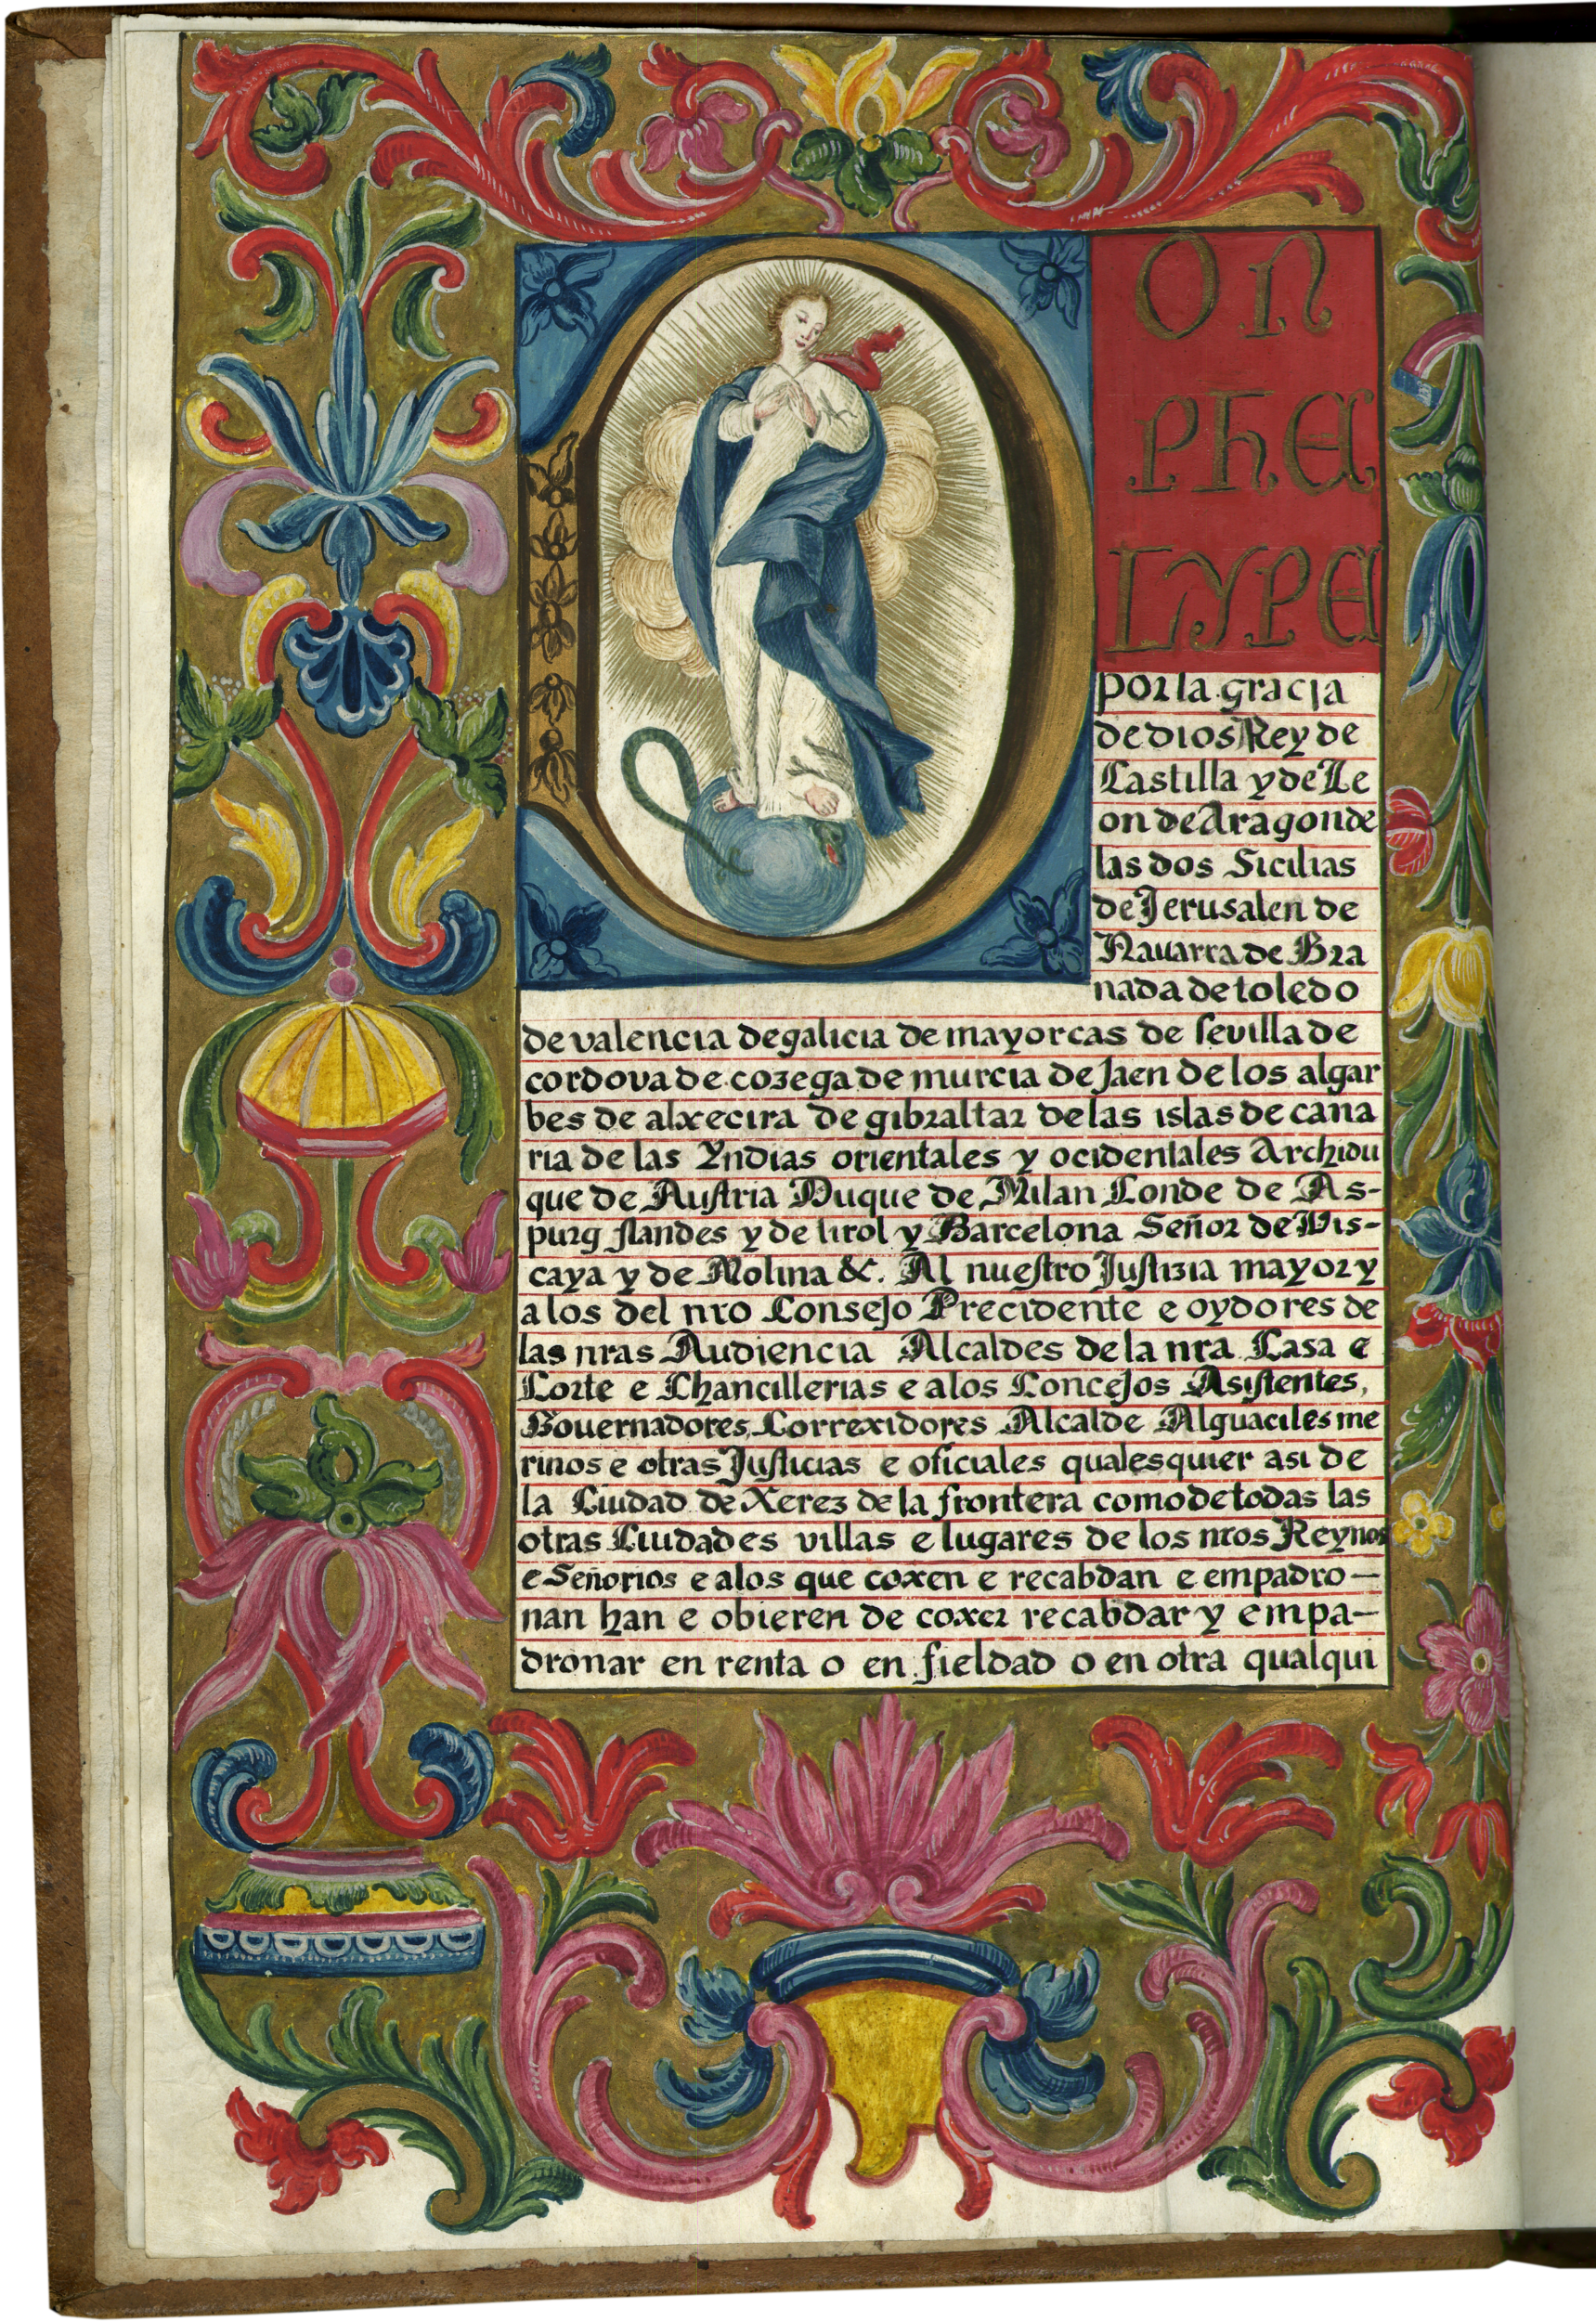 D
ON
PHE
LYPE
por la gracia
de dios Rey de
Castilla y de Le
on de Aragon de
las dos Sicilias
de Jerusalen de
Navarra de Gra
nada de toledo
de valencia de galicia de mayorcas de sevilla de
cordova de cozega de murcia de Jaen de los algar
bes de alxecira de gibraltar de las islas de cana
ria de las Yndias orientales y ocidentales Archidu
que de Austria Duque de Milan Conde de As-
purg flandes y de tirol y Barcelona Señor de Vis-
caya y de Molina &c. Al nuestro Justizia mayor y
a los del nro Consejo Precidente e oydores de
las nras Audiencia Alcaldes de la nra Casa e
Corte e Chancillerias e a los Concejos Asistentes,
Gouernadores, Correxidores Alcalde Alguaciles me
rinos e otras Justicias e oficiales qualesquier asi de
la Ciudad de Xerez de la frontera como de todas las
otras Ciudades villas e lugares de los nros Reynos
e Señorios e a los que coxen e recabdan e empadro-
nan han e obieren de coxer recabdar y empa-
dronar en renta o en fieldad o en otra qualqui